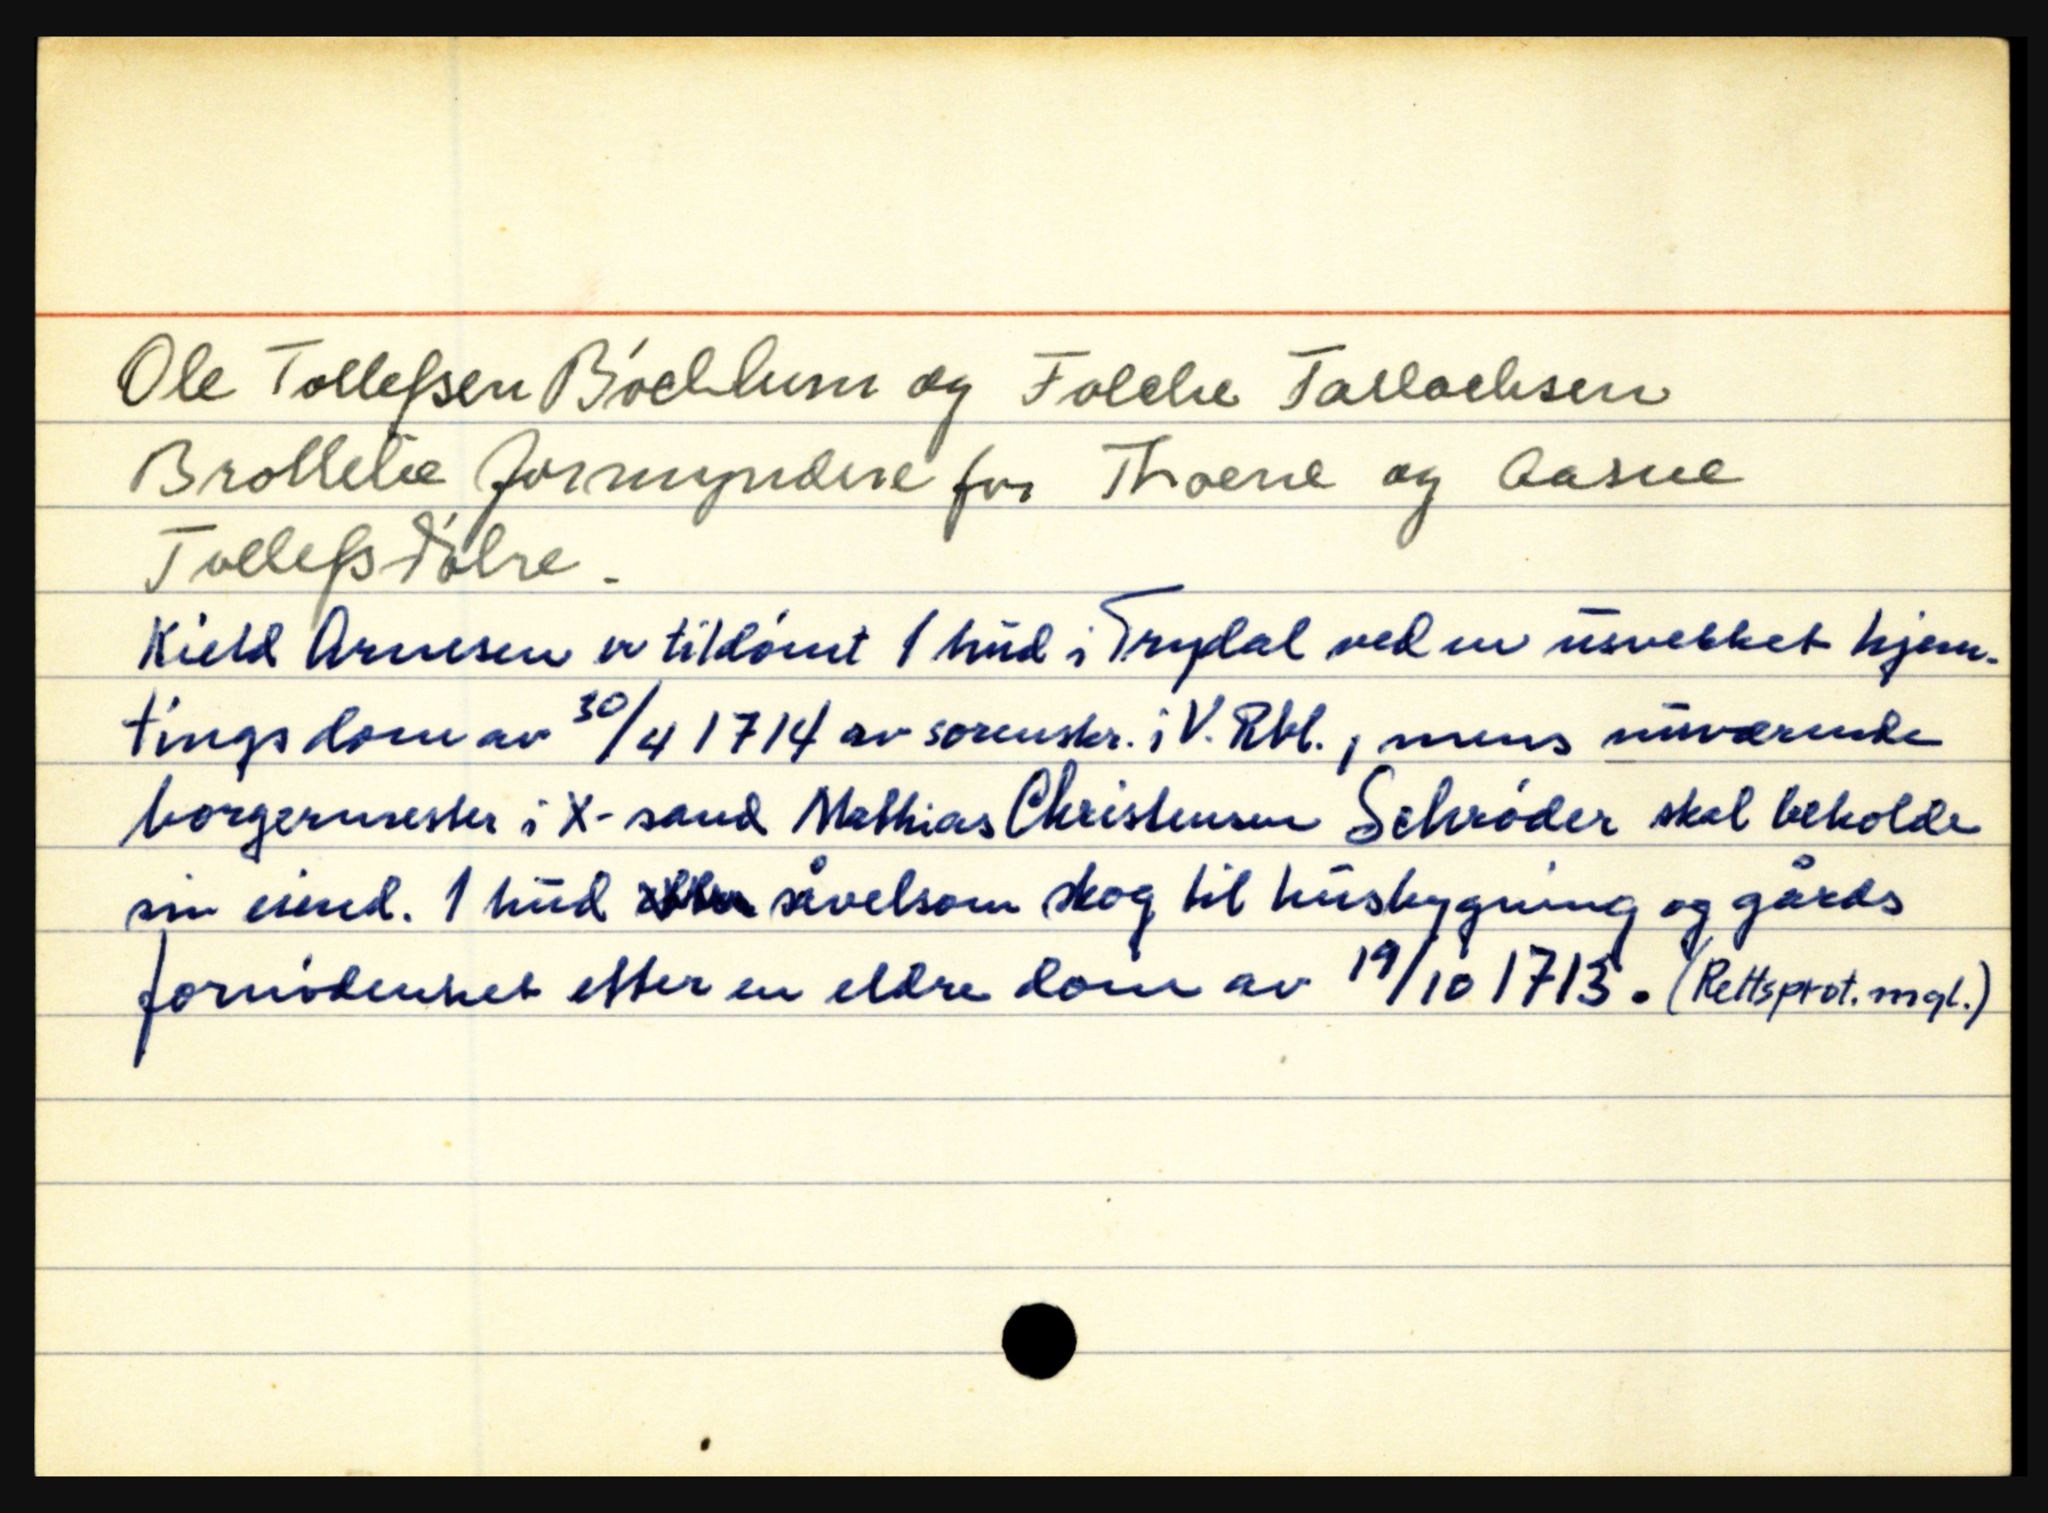 Ole Tollefsen Böchlum og Folche Tarlachsen
Brottelie formyndere for Thorne og Aasne
Tollefsdötre.
Kield Arnesen er tildömt 1 hud i Trydal ved en usvekket hjem-
tingsdom av 30/4 1714 av sorenskr. i V. Rbl., mens nuværende
borgermester i X-sand Mathias Christensen Schröder skal beholde
sin eiend. 1 hud såvelsom skog til husbygning og gårds
fornödenhet etter en eldre dom av 19/10 1713. (Rettsprot. mgl.)